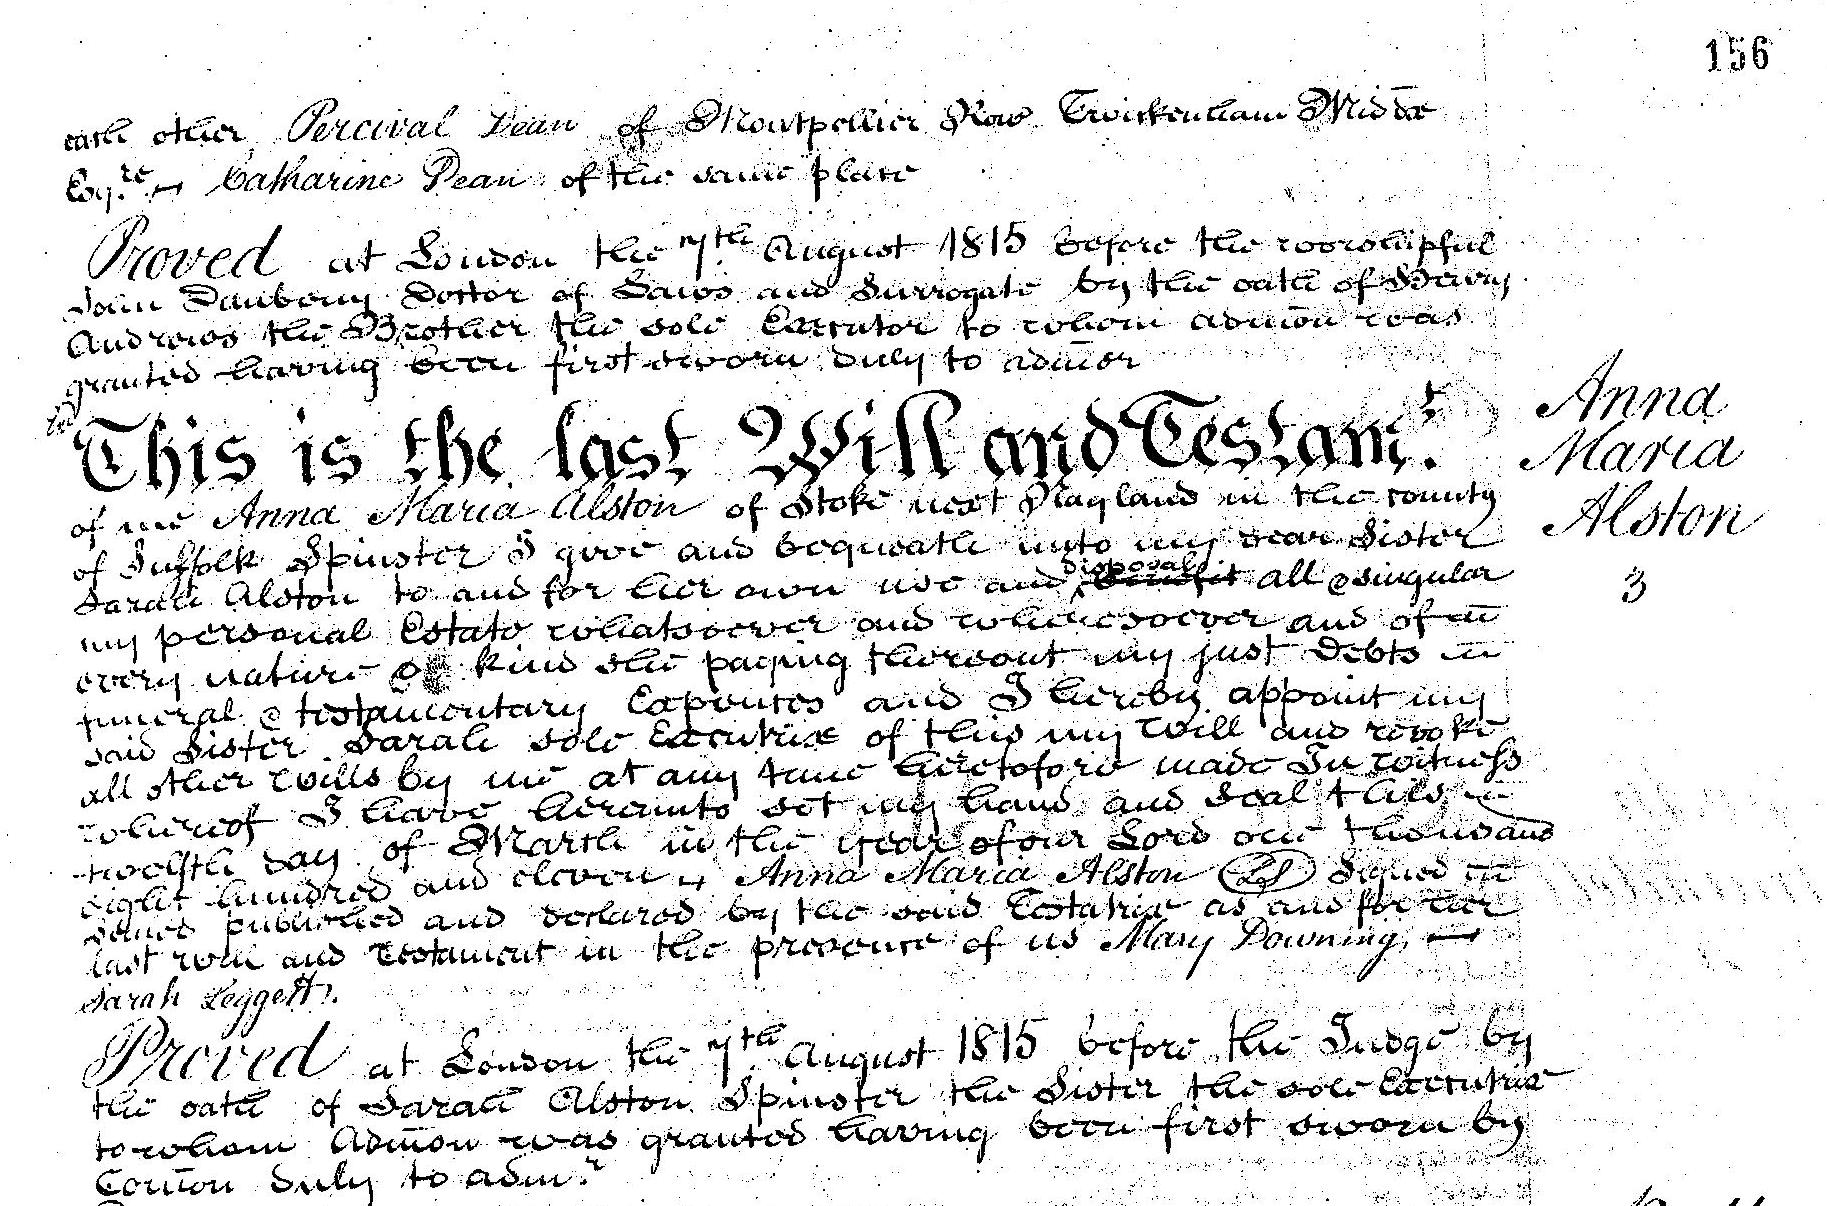 156
each other Percival Dean of Montpellier Row Twickenham Middx
Esqre Catharine Dean of the same place
Proved at London the 7th August 1815 before the worshipful
John Daubeny Doctor of Laws and Surrogate by the oath of Henry
Andrews the Brother the sole Executor to whom admon was
granted having been first sworn duly to admer
This is the last Will and Testamt.
Anna
Maria
Alston
3
of me Anna Maria Alston of Stoke next Nayland in the county
of Suffolk Spinster I give and bequeath unto my dear Sister
disposal
Sarah Alston to and for her own use and benefit all & singular
my personal Estate whatsoever and wheresoever and of
every nature or kind she paying thereout my just Debts
funeral & testamentary Expences and I hereby appoint my
said Sister Sarah sole Executrix of this my Will and revoke
all other Wills by me at any time heretofore made In witness
whereof I have hereunto set my hand and seal this
twelfth day of March in the year of our Lord one thousand
eight hundred and eleven Anna Maria Alston LS Signed
sealed published and declared by the said Testatrix as and for her
last will and Testament in the presence of us Mary Downing
Sarah Leggett.
Proved at London the 7th August 1815 before the Judge by
the oath of Sarah Alston Spinster the Sister the sole Executrix
to whom Admon was granted having been first sworn by
Comon duly to admr